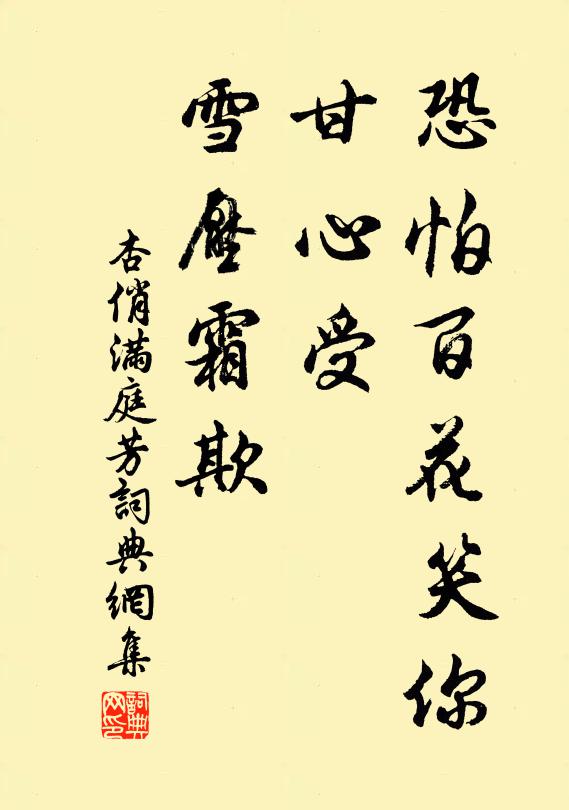 恐怕百花笑你
甘心受
雪壓霜欺
杏俏滿庭芳詞典網集
詞典网印